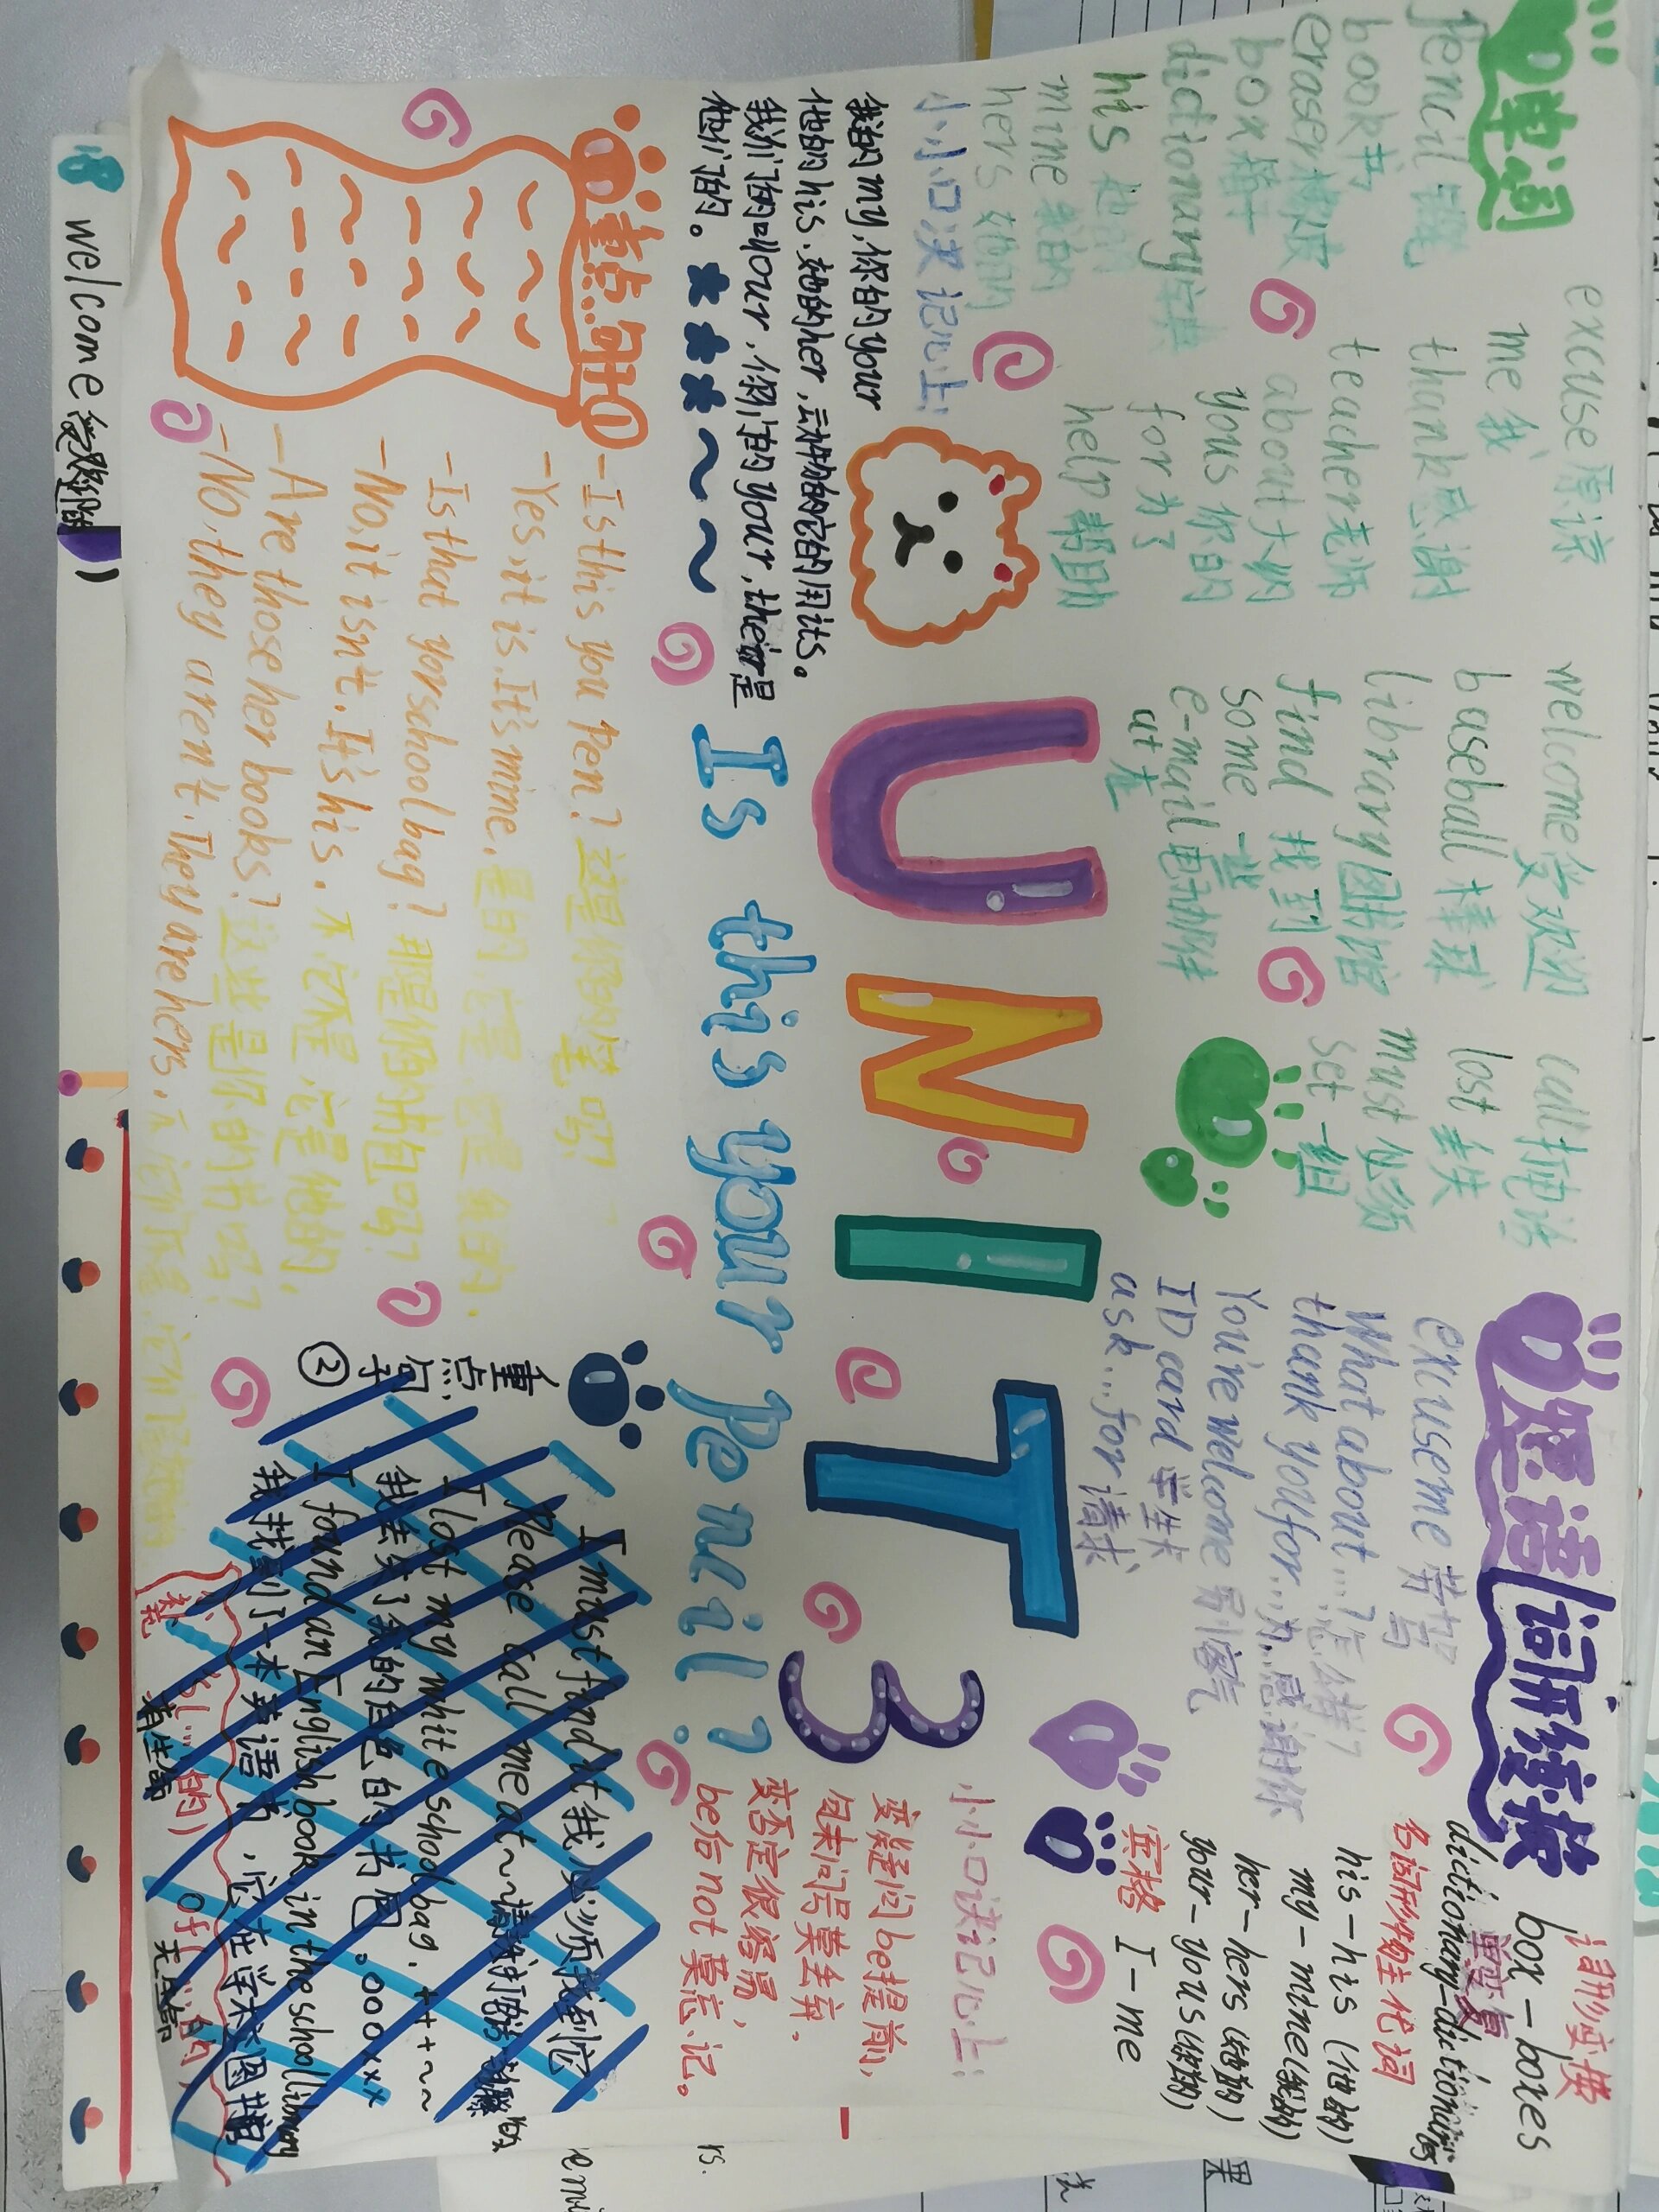 单词
pencil 铅笔
book 书
eraser 橡皮
box 箱子
dictionary 字典
his 他的
mine 我的
hers 她的
excuse 原谅
me 我
thank 感谢
teacher 老师
about 大约
yous 你的
for 为了
help 帮助
welcome 受欢迎
baseball 棒球
library 图书馆
find 找到
some 一些
e-mail 电子邮件
at 在
call 打电话
lost 丢失
must 必须
set 一组
短语
excuse me 劳驾
What about...?怎么样?
thank you for...为...感谢你
You're welcome 别客气
ID card 学生卡
ask...for 请求
词形变换
词形变换
box-boxes
dictionary-dictionaries
名词形物主代词
his-his (他的)
my-mine(我的)
her-hers (她的)
your-yous(你的)
宾格 I-me
小小口决记心上:
我的my,你的your
他的his,她的her,动物的它的用its。
我们的our,你们的your,their是
他们的。
UNIT 3
Is this your pencil?
小小口诀记心上:
变疑问be提前,
句末问号莫丢弃.
变否定很容易,
be后not莫忘记。
重点句子①
-Is this you pen? 这是你的笔吗?
-Yes, it is. It's mine. 是的,它是.它是我的.
-Is that yor schoolbag? 那是你的书包吗?
-No, it isn't. It's his. 不,它不是,它是他的,
-Are those her books? 这些是你的书吗?
-No, they aren't. They are hers.
重点句子②
I must find it 我必须找到它
Please call me at~
I lost my white schoolbag. +++~~
我丢失了我的白色的书包.000xxx
I found an English book in the schoollibrary
我找到了一本英语书,它在学校图书馆
有生命
of
无生命
18 welcome 受欢迎